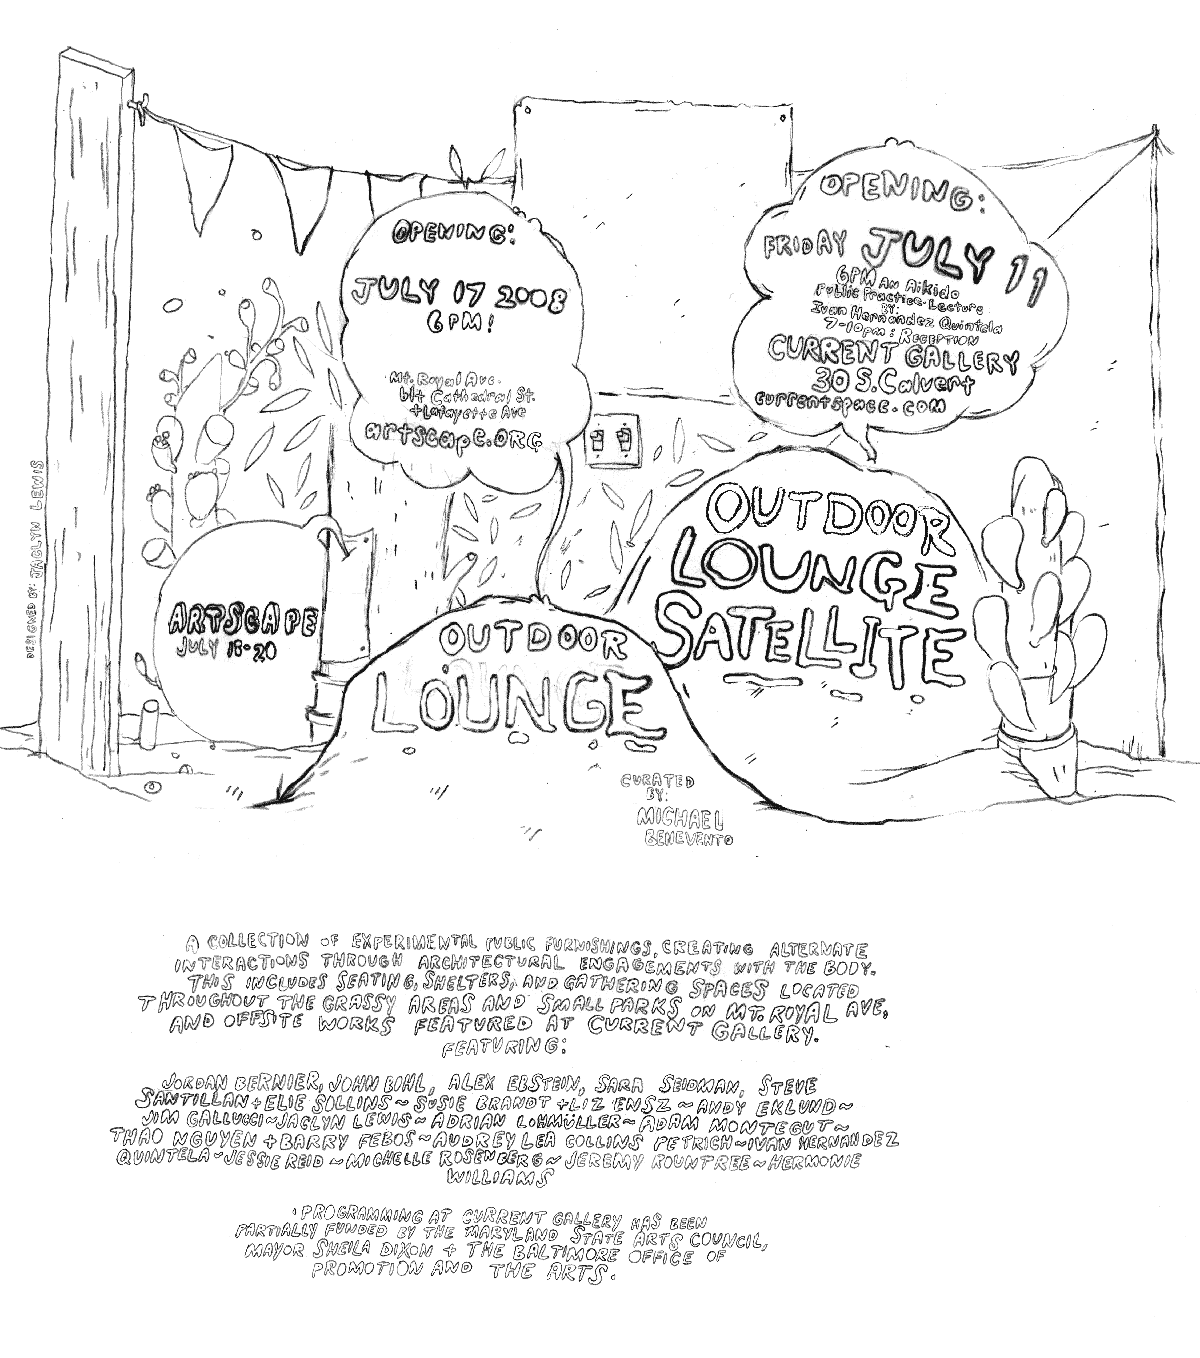 OPENING:
JULY 17 2008
6PM!
Mt. Royal Ave.
btt Cathedral St.
+ Lafayette Ave
artscape.ORG
OPENING:
FRIDAY JULY 11
6PM AN Aikido
Public Practice-Lecture
BY:
Ivan Hernandez Quintela
7-10pm: RECEPTION
CURRENT GALLERY
30 S. Calvert
currentspace.com
ARTSCAPE
JULY 18-20
OUTDOOR
LOUNGE
OUTDOOR
LOUNGE
SATELLITE
CURATED
BY:
MICHAEL
BENEVENTO
DESIGNED BY: JACLYN LEWIS
A COLLECTION OF EXPERIMENTAL PUBLIC FURNISHINGS, CREATING ALTERNATE
INTERACTIONS THROUGH ARCHITECTURAL ENGAGEMENTS WITH THE BODY.
THIS INCLUDES SEATING, SHELTERS, AND GATHERING SPACES LOCATED
THROUGHOUT THE GRASSY AREAS AND SMALL PARKS ON MT. ROYAL AVE,
AND OFFSITE WORKS FEATURED AT CURRENT GALLERY.
FEATURING:
JORDAN BERNIER, JOHN BOHL, ALEX EBSTEIN, SARA SEIDMAN, STEVE
SANTILLAN + ELIE SOLLINS ~ SUSIE BRANDT + LIZ ENSZ ~ ANDY EKLUND ~
JIM GALLUCCI ~ JACLYN LEWIS ~ ADRIAN LOHMÜLLER ~ ADAM MONTEGUT ~
THAO NGUYEN + BARRY FEBOS ~ AUDREY LEA COLLINS PETRICH ~ IVAN HERNANDEZ
QUINTELA ~ JESSIE REID ~ MICHELLE ROSENBERG ~ JEREMY ROUNTREE ~ HERMONIE
WILLIAMS
PROGRAMMING AT CURRENT GALLERY HAS BEEN
PARTIALLY FUNDED BY THE MARYLAND STATE ARTS COUNCIL,
MAYOR SHEILA DIXON + THE BALTIMORE OFFICE OF
PROMOTION AND THE ARTS.